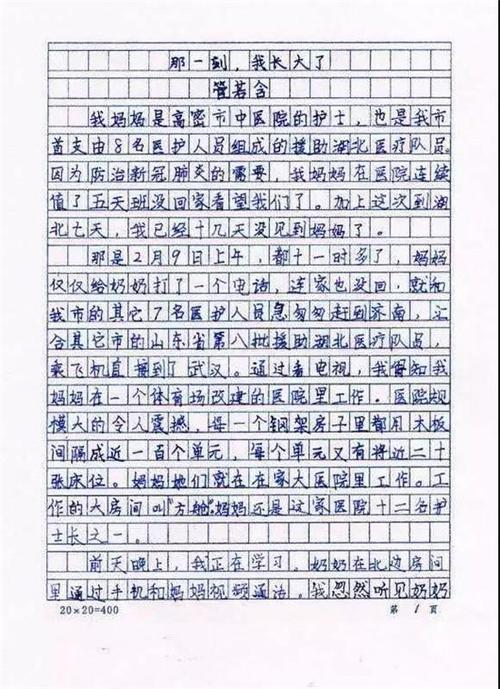 那一刻，我长大了
管若含
我妈妈是高密市中医院的护士，也是我市
首支由8名医护人员组成的援助湖北医疗队员。
因为防治新冠肺炎的需要，我妈妈在医院连续
值了五天班没回家看望我们了。加上这次到湖
北七天，我已经十几天没见到妈妈了。
那是2月9日上午，都十一时多了，妈妈
仅仅给奶奶打了一个电话，连家也没回，就和
我市的其它7名医护人员急匆匆赶到济南，汇
合其它市的山东省第八批援助湖北医疗队员，
乘飞机直接到了武汉。通过看电视，我得知我
妈妈在一个体育场改建的医院里工作。医院规
模大的令人震撼，每一个钢架房子里都用木板
间隔成近一百个单元，每个单元又有将近二十
张床位。妈妈她们就在在家大医院里工作。工
作的大房间叫"方舱"。妈妈还是这家医院十二名护
士长之一。
前天晚上，我正在学习。奶奶在北边房间
里通过手机和妈妈视频通话。我忽然听见奶奶
20×20=400 第1页